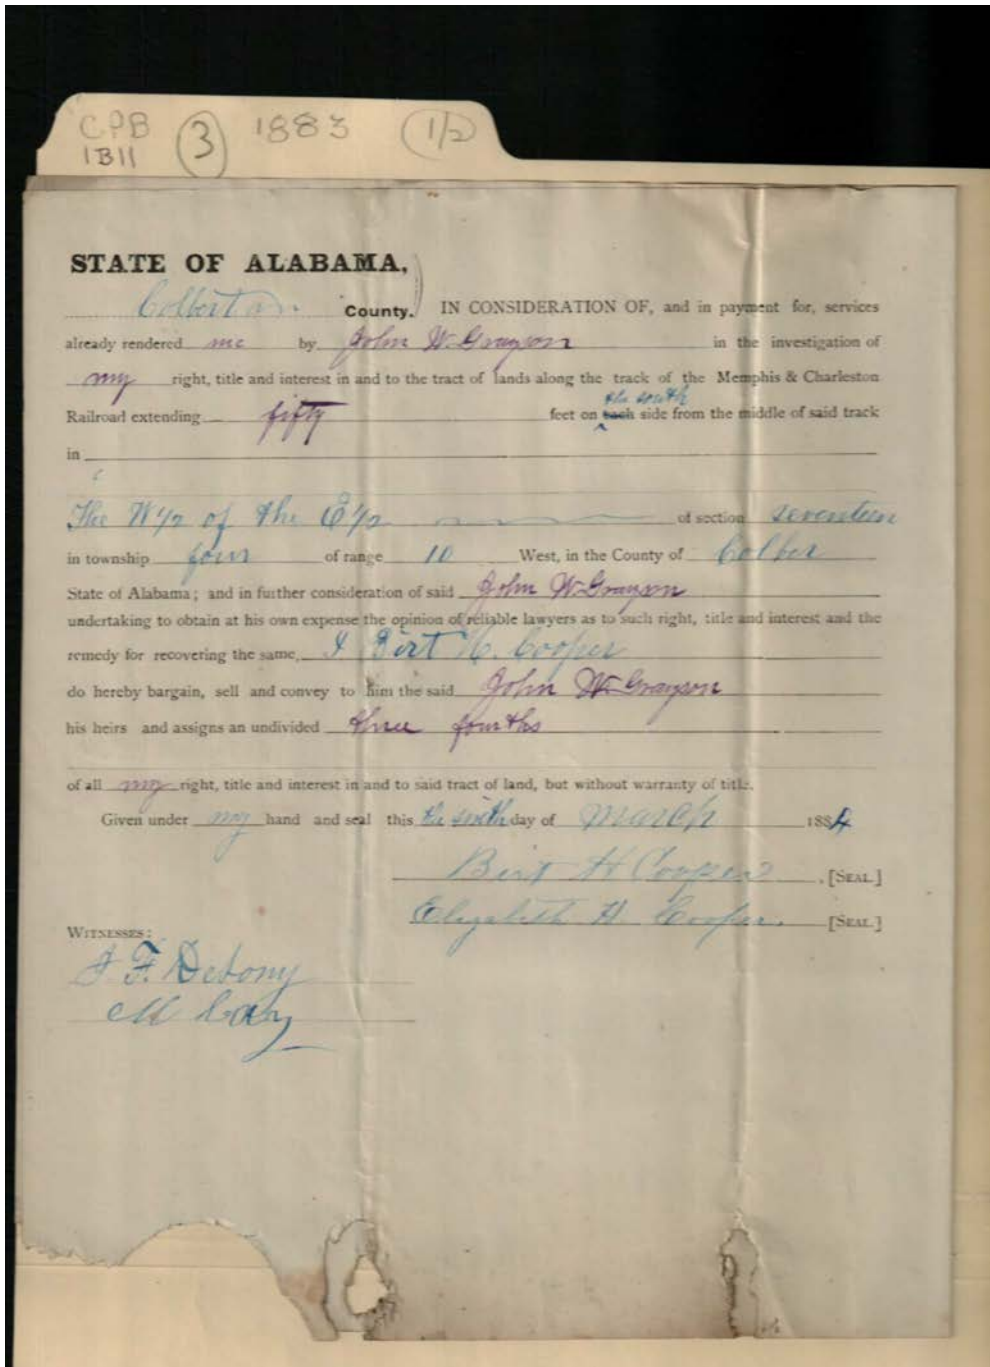 CPB 3 1883 (1/2)
1B11
STATE OF ALABAMA,
Colbert County. IN CONSIDERATION OF, and in payment for, services
already rendered me by John W. Grayson in the investigation of
my right, title and interest in and to the tract of lands along the track of the Memphis & Charleston
the south
Railroad extending fifty feet on each side from the middle of said track
in
The W 1/2 of the E 1/2 of section seventeen
in township four of range 10 West, in the County of Colber
State of Alabama; and in further consideration of said John W. Grayson
undertaking to obtain at his own expense the opinion of reliable lawyers as to such right, title and interest and the
remedy for recovering the same, I Birt H. Cooper
do hereby bargain, sell and convey to him the said John W. Grayson
his heirs and assigns an undivided three fourths
of all my right, title and interest in and to said tract of land, but without warranty of title.
Given under my hand and seal this the sixth day of March 1884
Birt H Cooper [SEAL.]
Elizabeth H Cooper. [SEAL.]
WITNESSES:
F.
M